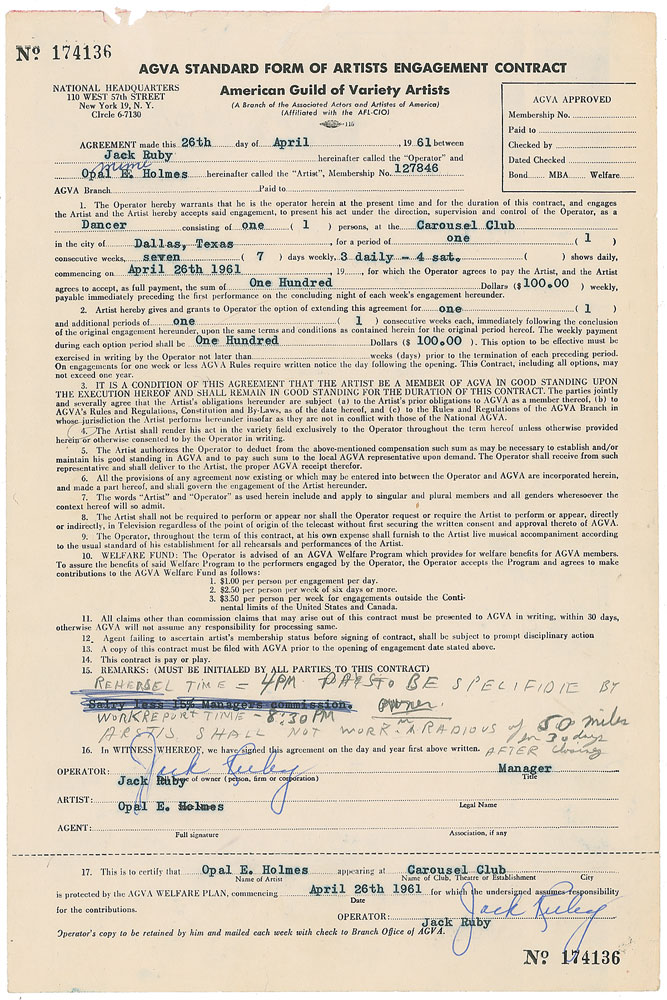 No 174136
AGVA STANDARD FORM OF ARTISTS ENGAGEMENT CONTRACT
NATIONAL HEADQUARTERS
110 WEST 57th STREET
New York 19, N. Y.
CIrcle 6-7130
American Guild of Variety Artists
(A Branch of the Associated Actors and Artistes of America)
(Affiliated with the AFL-CIO)
115
AGVA APPROVED
Membership No.
Paid to
Checked by
Dated Checked
Bond MBA Welfare
AGREEMENT made this 26th day of April, 1961 between
Jack Ruby hereinafter called the "Operator" and
mimi
Opal E. Holmes hereinafter called the "Artist", Membership No. 127846
AGVA Branch Paid to
1. The Operator hereby warrants that he is the operator herein at the present time and for the duration of this contract, and engages
the Artist and the Artist hereby accepts said engagement, to present his act under the direction, supervision and control of the Operator, as a
Dancer consisting of one ( 1 ) persons, at the Carousel Club
in the city of Dallas, Texas, for a period of one ( 1 )
consecutive weeks, seven ( 7 ) days weekly, 3 daily - 4 sat. ( ) shows daily,
commencing on April 26th 1961, 19 , for which the Operator agrees to pay the Artist, and the Artist
agrees to accept, as full payment, the sum of One Hundred Dollars ($100.00 ) weekly,
payable immediately preceding the first performance on the concluding night of each week's engagement hereunder.
2. Artist hereby gives and grants to Operator the option of extending this agreement for one ( 1 )
and additional periods of one ( 1 ) consecutive weeks each, immediately following the conclusion
of the original engagement hereunder, upon the same terms and conditions as contained herein for the original period hereof. The weekly payment
during each option period shall be One Hundred Dollars ($ 100.00 ). This option to be effective must be
exercised in writing by the Operator not later than weeks (days) prior to the termination of each preceding period.
On engagements for one week or less AGVA Rules require written notice the day following the opening. This Contract, including all options, may
not exceed one year.
3. IT IS A CONDITION OF THIS AGREEMENT THAT THE ARTIST BE A MEMBER OF AGVA IN GOOD STANDING UPON
THE EXECUTION HEREOF AND SHALL REMAIN IN GOOD STANDING FOR THE DURATION OF THIS CONTRACT. The parties jointly
and severally agree that the Artist's obligations hereunder are subject (a) to the Artist's prior obligations to AGVA as a member thereof, (b) to
AGVA's Rules and Regulations, Constitution and By-Laws, as of the date hereof, and (c) to the Rules and Regulations of the AGVA Branch in
whose jurisdiction the Artist performs hereunder insofar as they are not in conflict with those of the National AGVA.
4. The Artist shall render his act in the variety field exclusively to the Operator throughout the term hereof unless otherwise provided
herein or otherwise consented to by the Operator in writing.
5. The Artist authorizes the Operator to deduct from the above-mentioned compensation such sum as may be necessary to establish and/or
maintain his good standing in AGVA and to pay such sum to the local AGVA representative upon demand. The Operator shall receive from such
representative and shall deliver to the Artist, the proper AGVA receipt therefor.
6. All the provisions of any agreement now existing or which may be entered into between the Operator and AGVA are incorporated herein,
and made a part hereof, and shall govern the engagement of the Artist hereunder.
7. The words "Artist" and "Operator" as used herein include and apply to singular and plural members and all genders wheresoever the
context hereof will so admit.
8. The Artist shall not be required to perform or appear nor shall the Operator request or require the Artist to perform or appear, directly
or indirectly, in Television regardless of the point of origin of the telecast without first securing the written consent and approval thereto of AGVA.
9. The Operator, throughout the term of this contract, at his own expense shall furnish to the Artist live musical accompaniment according
to the usual standard of his establishment for all rehearsals and performances of the Artist.
10. WELFARE FUND: The Operator is advised of an AGVA Welfare Program which provides for welfare benefits for AGVA members.
To assure the benefits of said Welfare Program to the performers engaged by the Operator, the Operator accepts the Program and agrees to make
contributions to the AGVA Welfare Fund as follows:
1. $1.00 per person per engagement per day.
2. $2.50 per person per week of six days or more.
3. $3.50 per person per week for engagements outside the Conti-
nental limits of the United States and Canada.
11. All claims other than commission claims that may arise out of this contract must be presented to AGVA in writing, within 30 days,
otherwise AGVA will not assume any responsibility for processing same.
12. Agent failing to ascertain artist's membership status before signing of contract, shall be subject to prompt disciplinary action
13. A copy of this contract must be filed with AGVA prior to the opening of engagement date stated above.
14. This contract is pay or play.
15. REMARKS: (MUST BE INITIALED BY ALL PARTIES TO THIS CONTRACT)
REHERSEL TIME = 4PM DAYS TO BE SPELIFIDIE BY
Salry less 15% Managers commission. owner.
WORK REPORT TIME - 8:30 PM
ARSTIS SHALL NOT WORK IN RADIOUS of 50 miles
for 30 days
AFTER closing
16. In WITNESS WHEREOF, we have signed this agreement on the day and year first above written.
OPERATOR: Jack Ruby Manager
Jack Ruby of owner (person, firm or corporation) Title
ARTIST:
Opal E. Holmes Legal Name
AGENT:
Full signature Association, if any
17. This is to certify that Opal E. Holmes appearing at Carousel Club
Name of Artist Name of Club, Theatre or Establishment City
is protected by the AGVA WELFARE PLAN, commencing April 26th 1961 for which the undersigned assumes responsibility
Date
for the contributions.
OPERATOR: Jack Ruby
Jack Ruby
Operator's copy to be retained by him and mailed each week with check to Branch Office of AGVA.
No 174136